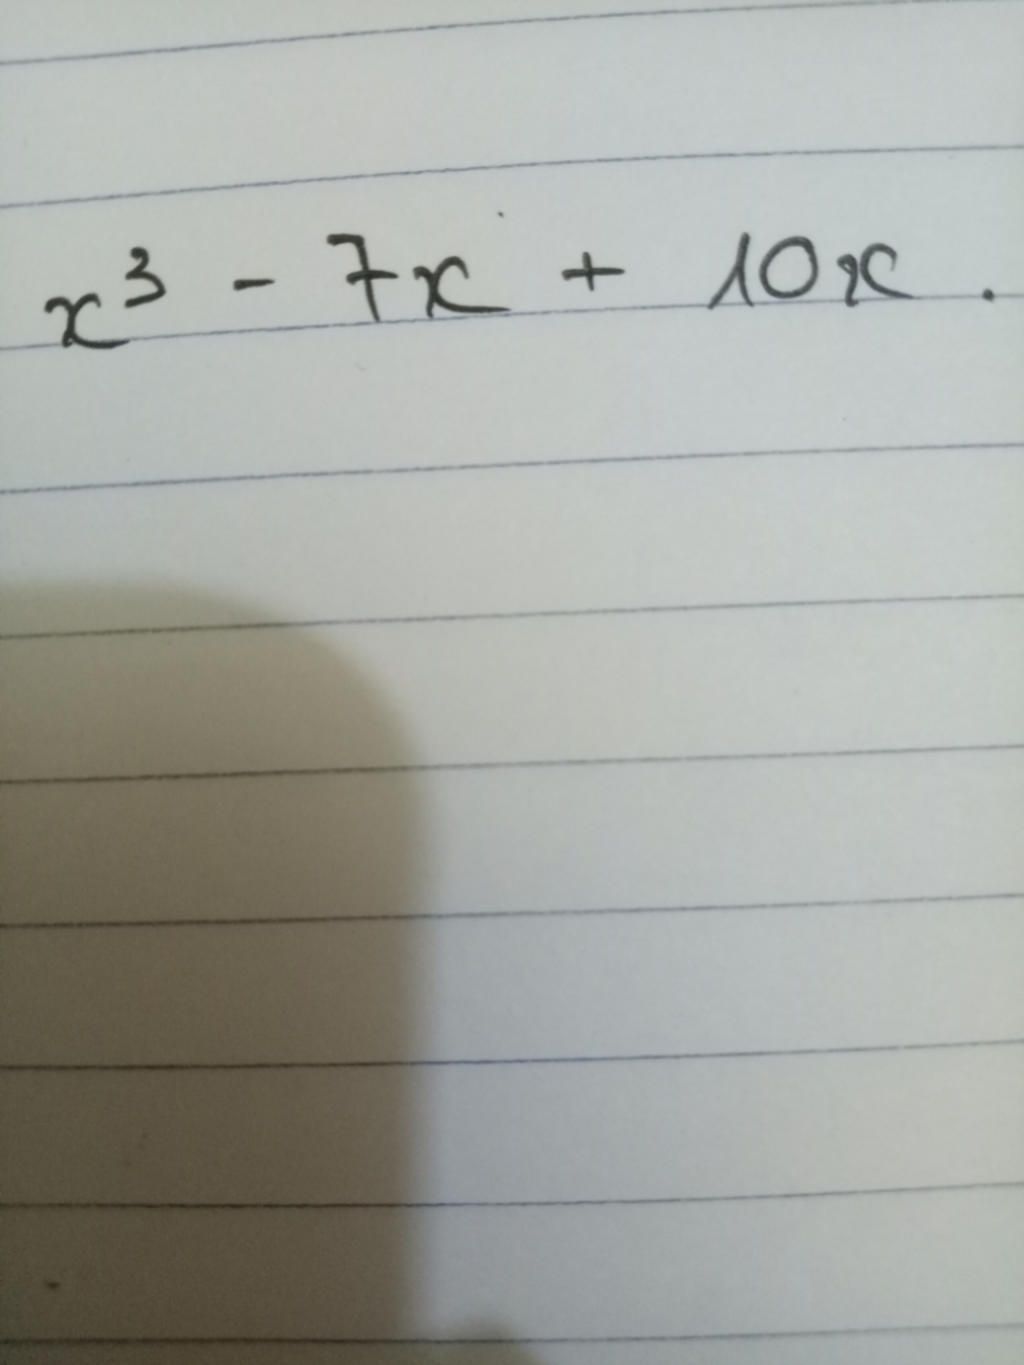 x³ - 7x + 10x .